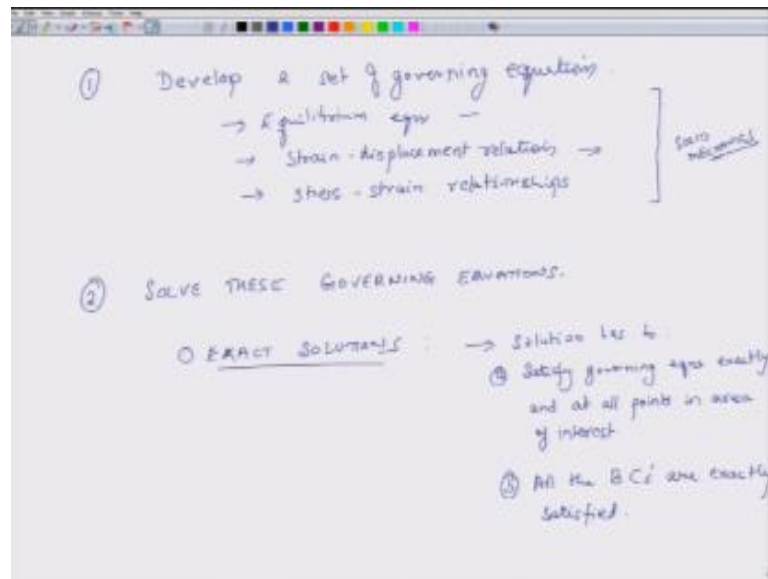 ① Develop a set of governing equations.
→ Equilibrium eqns —
→ Strain-displacement relations →
→ Stress-strain relationships
SOLID MECHANICS
② SOLVE THESE GOVERNING EQUATIONS.
○ EXACT SOLUTIONS : → Solution has to
ⓐ Satisfy governing eqns exactly
and at all points in area
of interest
ⓑ All the BCs are exactly
satisfied.